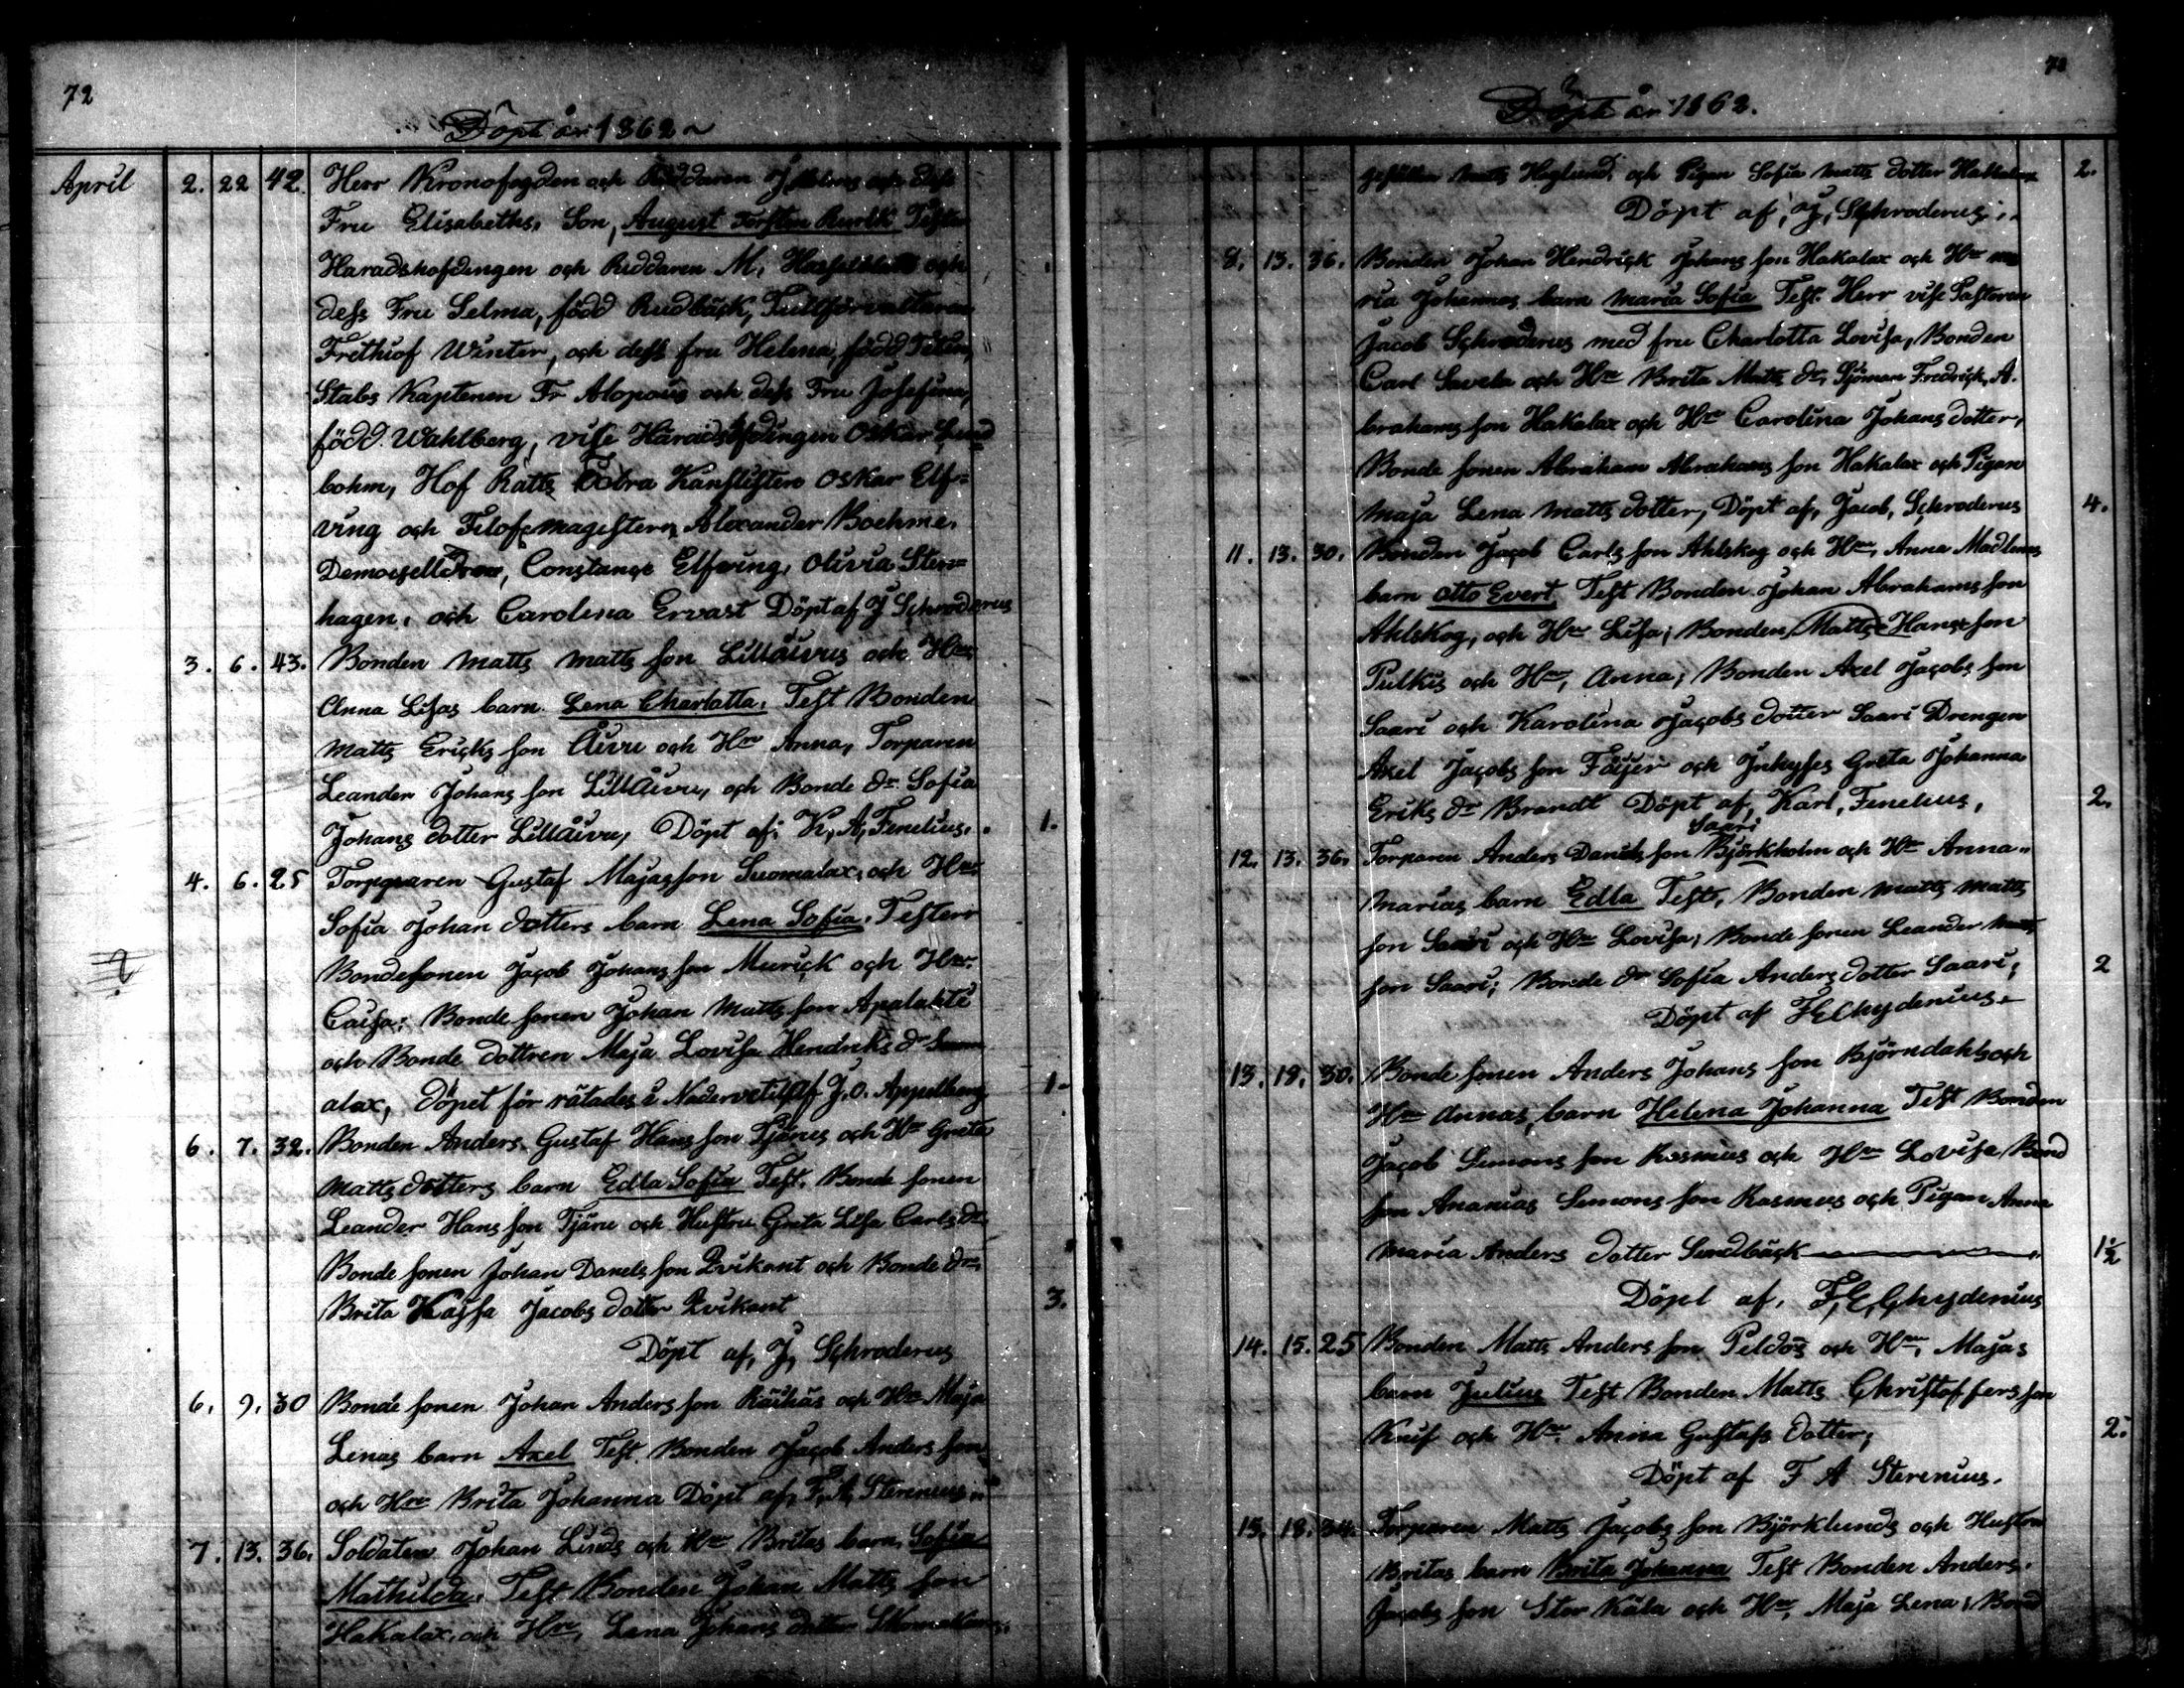 72
Döpt år 1862
April 2. 22 42. Herr Kronofogden och Riddaren J. och dess
Fru Elisabeths, Son, August Torsten Rurik Testes
Häradshöfdingen och Riddaren M. Hasselblatt och
dess Fru Selma, född Rudbäck, Tullförvaltaren
Frithiof Winter, och dess fru Helena, född
Stabs Kaptenen Fr Alopæus och dess Fru Josefina,
född Wahlberg, vise Häradshöfdingen Oskar Lind
bohm, Hof Rätts Extra Kanslisten Oskar Elf=
ving och Filosofie magistern, Alexander Boehme,
Demoisellerna, Constance Elfving, Olivia Sten=
hagen, och Carolina Ervast Döpt af J Schroderus
3. 6. 43. Bonden Matts Matts son Lillåivus och Hru
Anna Lisas barn Lena Charlotta, Test Bonden
Matts Ericks son Åivu och Hru Anna, Torparen
Leander Johans son Lillåivu, och Bonde dr Sofia
Johans dotter Lillåivu, Döpt af: K, A, Fenelius. 1.
4. 6. 25 Torparen Gustaf Majasson Suomalax, och Hru
Sofia Johan dotters barn Lena Sofia. Testes
Bondesonen Jacob Johans son Murick och Hru
Caisa; Bonde sonen Johan Matts son Apalahti
och Bonde dottren Maja Lovisa Hendriks dr Suom
alax, döpet för rätades i Nedervetil af J. O. Appelberg 1.
6. 7. 32. Bonden Anders Gustaf Hans son Tjärus och Hru Greta
Matts dotters barn Edla Sofia Test. Bonde sonen
Leander Hans son Tjäru och Hustru Greta Lisa Carls dr
Bonde sonen Johan Daniels son Qvikant och Bonde dr
Brita Kajsa Jacobs dotter Qvikant 3.
Döpt af, J, Schroderus
6. 9. 30 Bonde sonen Johan Anders son Räihäs och Hru Maja
Lenas barn Axel Test. Bonden Jacob Anders son
och Hru Brita Johanna Döpt af, F, A, Sterenius
7. 13. 36. Soldaten Johan Linds och Hru Britas barn Sofia
Mathilda. Test Bonden Johan Matts son
Hakalax, och Hru, Lena Johans dotter
Döpt år 1862.
Matts Höglund, och Pigan Sofia Matts dotter Hakalax 2.
Döpt af, J, Schroderus
8. 13. 36. Bonden Johan Hendrick Johans son Hakalax och Hru Ma
ria Johannas barn Maria Sofia Test. Herr vise Pastoren
Jacob Schroderus med fru Charlotta Lovisa, Bonden
Carl Savela och Hru Brita Matts dr, Sjöman Fredrick, A.
brahams son Hakalax och Hru Carolina Johans dotter,
Bonde sonen Abraham Abrahams son Hakalax och Pigan
Maja Lena Matts dotter, Döpt af, Jacob, Schroderus 4.
11. 13. 30. Bonden Jacob Carls son Ahlskog och Hru, Anna Madlenas
barn Otto Evert Test Bonden Johan Abrahams son
Ahlskog, och Hru Lisa; Bonden, Matts Hans son
Pulkis och Hru, Anna; Bonden Axel Jacobs son
Saari och Karolina Jacobs dotter Saari Drengen
Axel Jacobs son och Inhyses Greta Johanna
Eriks dr Brandt Döpt af, Karl, Fenelius, 2.
Saari
12. 13. 36. Torparen Anders Daniels son Björkholm och Hru Anna
Marias barn Edla Test, Bonden Matts Matts
son Saari och Hru Lovisa; Bonde sonen Leander Matts
son Saari; Bonde dr Sofia Anders dotter Saari; 2
Döpt af F E Chydenius
13. 19. 30. Bonde sonen Anders Johans son Björndahls och
Hru Annas, barn Helena Johanna Test Bonden
Jacob Simons son Rasmus och Hru Lovisa, Bond
son Ananias Simons son Rasmus och Pigan Anna
Maria Anders dotter Sundbäck 1½
Döpt af, F, E, Chydenius
14. 15. 25 Bonden Matts Anders son Peldos och Hru, Majas
barn Julius Test Bonden Matts Christoffers son
Knif och Hru Anna Gustafs dotter; 2.
Döpt af F A Sterenius.
15. 18. 34. Torparen Matts Jacobs son Björklunds och Hustru
Britas barn Brita Johanna Test Bonden Anders
Jacobs son Stor Käla och Hru, Maja Lena; Bond